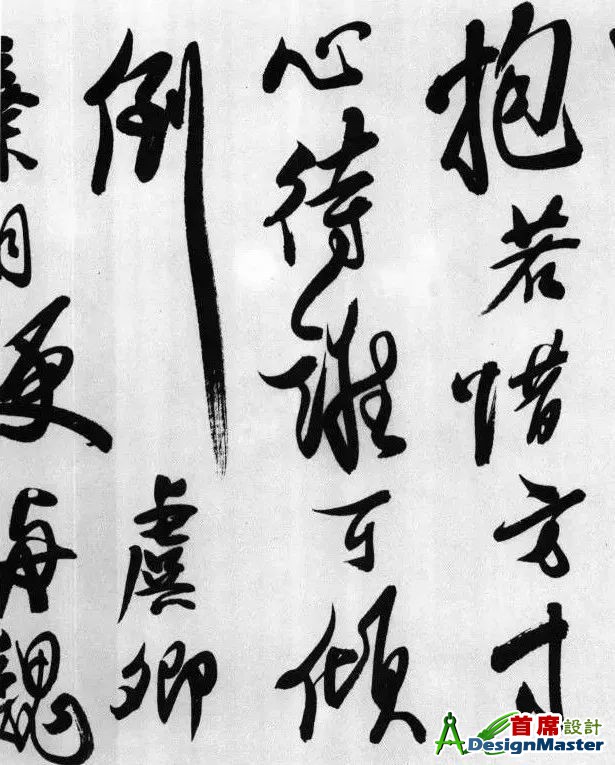 抱若惜方寸
心待誰可傾
倒虞卿
相便與魏
首席設計
DesignMaster